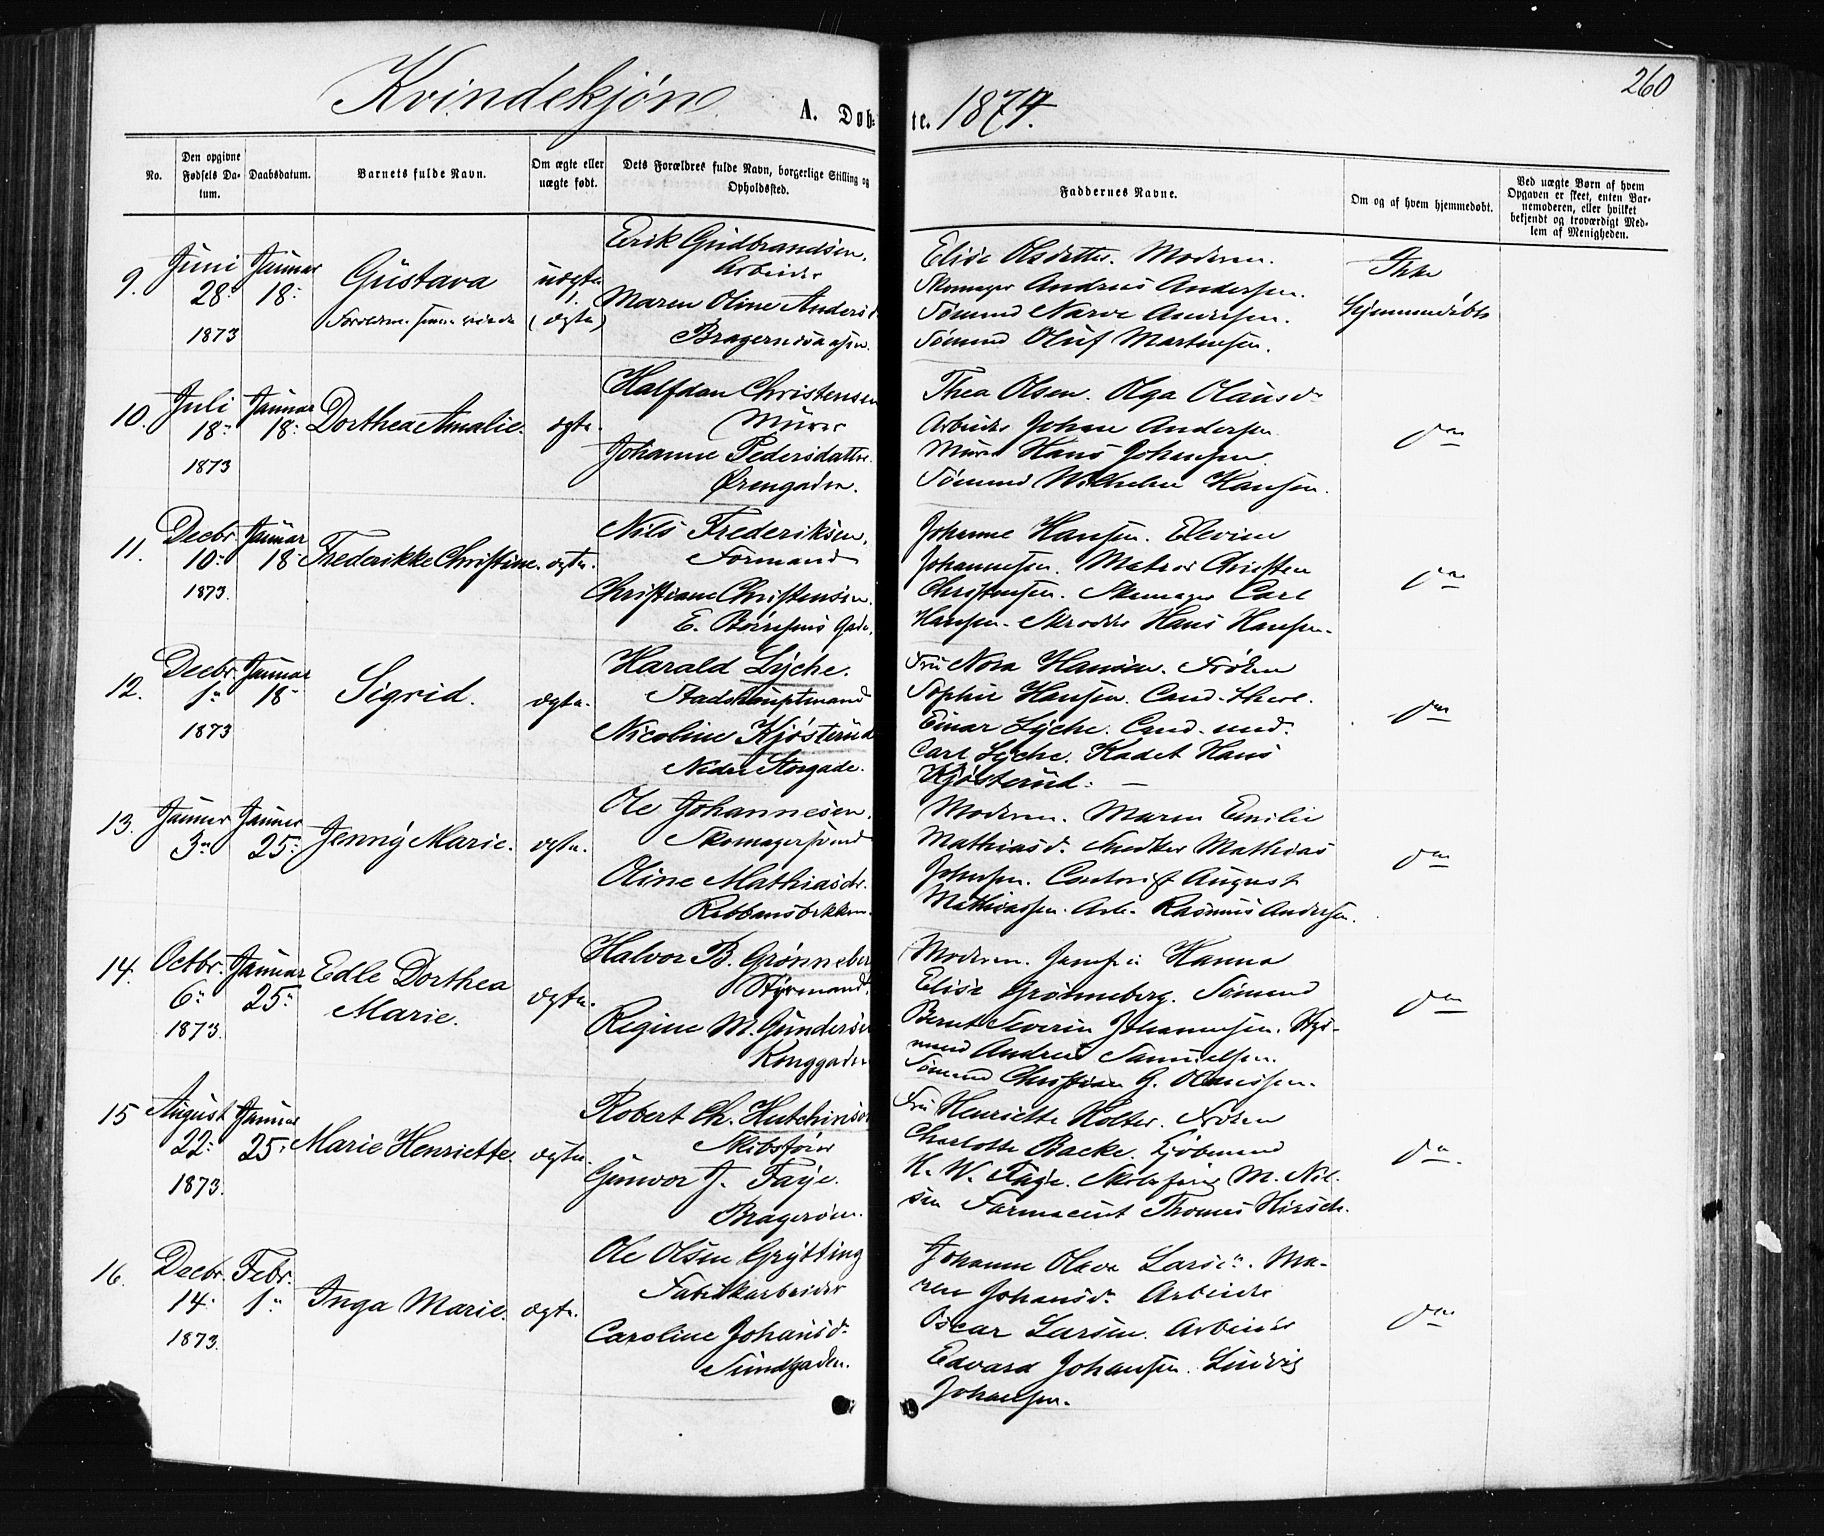 260
Kvindekjøn. A. Døbte. 1874.
No.
Den opgivne Fødsels Datum.
Daabsdatum.
Barnets fulde Navn.
Om ægte eller uægte født.
Dets Forældres fulde Navn, borgerlige Stilling og Opholdssted.
Faddernes Navne.
Om og af hvem hjemmedøbt.
Ved uægte Børn af hvem Opgaven er skeet, enten Barnemoderen, eller hvilket bekjendt og troværdigt Medlem af Menigheden.
9. Juni 28: 1873
Januar 18:
Gustava
uægte
(ægte)
Erik Gudbrandsen.
Arbeider
Maren Oline Anders
Bragernesaasen.
Elise Olsdatter. Moderen.
Skomager Andreas Andersen.
Sømand Narve Andersen.
Sømand Oluf Martinsen.
Ikke
hjemmedøbt
10. Juli 18: 1873
Januar 18:
Dorthea Amalie.
ægte.
Halfdan Christensen
Murer
Johanne Pedersdatter.
Ørengaden.
Thea Olsen. Olga Olausd.
Arbeider Johan Andersen
Murer Hans Johansen.
Sømand Wilhelm Hansen.
do
11. Decbr 10: 1873.
Januar 18
Frederikke Christine.
ægte.
Nils Frederiksen,
Formand
Christiane Christensen.
E. Børresens Gade.
Johanne Hansen. Elevine
Johannesen. Matros Christen
Christensen. Skomager Carl
Hansen. Skrædder Hans Hansen.
do
12. Decbr 1ste 1873
Januar 18
Sigrid.
ægte.
Harald Lyche.
Stadshauptmand
Nicoline Kjøsterud
Nedre Storgade.
Fru Nora Hansen. Frøken
Sophie Hansen. Cand. theol.
Einar Lyche. Cand. med.
Carl Lyche. Kadet Hans
Kjøsterud.
do
13. Januar 3
Januar 25:
Jenny Marie.
ægte.
Ole Johannesen.
Skomagersvend
Oline Mathiasdr.
Rebbansbakken.
Moderen. Maren Emilie
Mathiasd. Snedker Mathias
Johnsen. Contorist August
Mathiassen. Arb. Rasmus Andersen.
do
14. Octbr. 6: 1873.
Januar 25:
Edle Dorthea
Marie.
ægte.
Halvor B. Grønneberg
Styrmand.
Regine M. Gundersen
Konggaden
Moderen. Hanna
Elise Grønneberg. Sømand
Bernt Severin Johannesen. Styr-
mand Andreas Samuelsen.
Sømand Christian G. Olaussen.
do
15 August 22: 1873.
Januar 25:
Marie Henriette.
ægte.
Robert Ch. Hutchinson
Skibsfører
Gunvor J. Faye.
Bragerøen.
Fru Henriette Holter. Frøken
Charlotte Backe. Kjøbmand
H. W. Faye. Skibsfører M. Niel-
sen Farmaceut Thomas Hirsch.
do
16. Decbr. 14: 1873.
Febr. 1:
Inga Marie.
ægte.
Ole Olsen Grytting
Fabrikarbeider
Caroline Johansd.
Sundgaden.
Johanne Olava Larsen. Ma-
ren Johansd. Arbeider
Oscar Larsen. Arbeider
Edvard Johansen. Ludvig
Johansen.
do